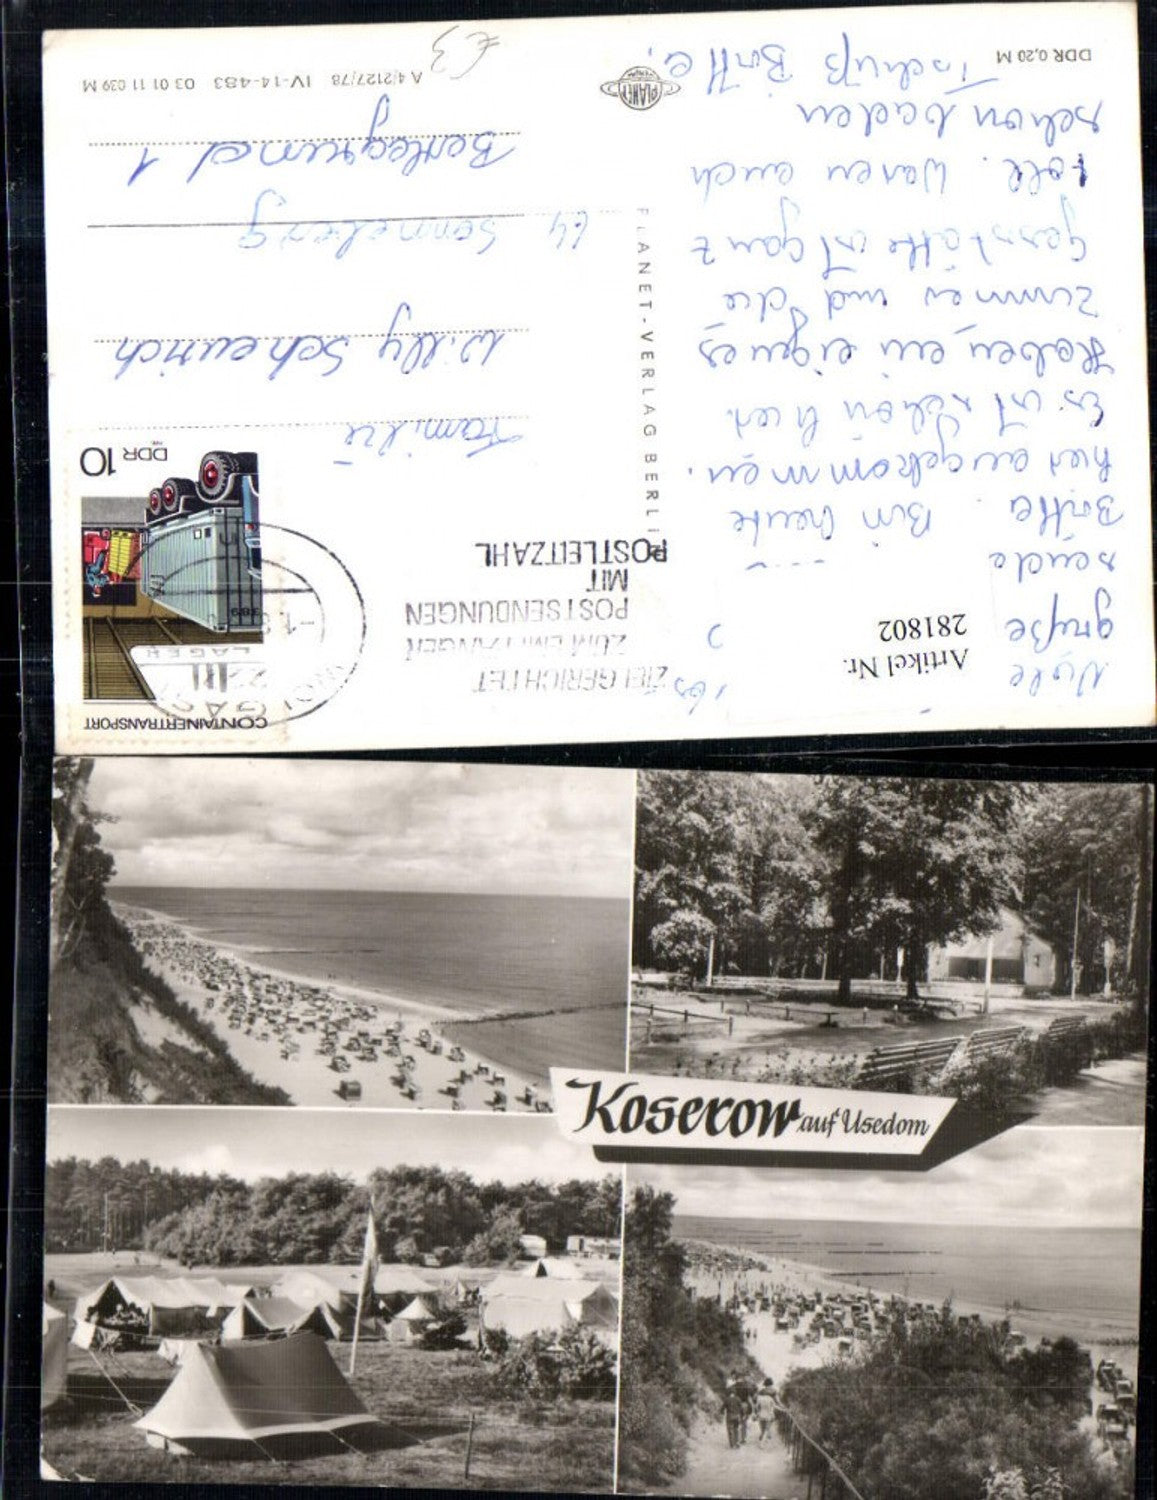 Viele
Grüße
sendet
Britta. Bin heute
hier angekommen.
Es ist schön hier.
Haben ein eigenes
Zimmer und die
Gaststätte ist ganz
toll. Waren auch
schon baden
Tschüß Britta.
DDR 0,20 M
PLANET
VERLAG
PLANET-VERLAG BERLIN
A 4/2127/78 IV-14-483 03 01 11 039 M
€3
Artikel Nr.
281802
ZIELGERICHTET
ZUM EMPFÄNGER
POSTSENDUNGEN
MIT
POSTLEITZAHL
CONTAINERTRANSPORT
DDR 10
WOLGAST
22
LAGER
Familie
Willy Scheurich
64 Sonneberg
Bettlegrund 1
Koserow auf Usedom